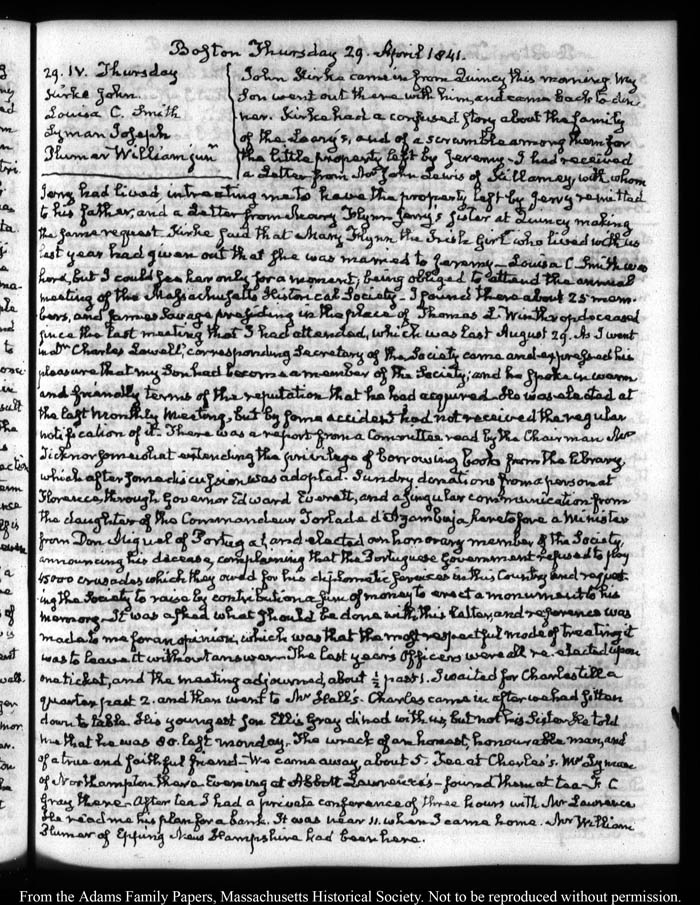 Boston Thursday 29. April 1841.
29. IV. Thursday
Kirke John.
Louisa C. Smith
Lyman Joseph
Plumer William junr
John Kirke came in from Quincy this morning. My
Son went out there with him, and came back to din-
ner. Kirke had a confused story about the family
of the Leary's, and of a scramble among them for
the little property left by Jeremy. I had received
a Letter from Mr John Lewis of Killarney, with whom
Jerry had lived, intreating me to have the property left by Jerry remitted
to his father, and a Letter from Mary Flynn Jerry's Sister at Quincy making
the same request. Kirke said that Mary Flynn the Irish Girl who lived with us
last year had given out that she was married to Jeremy — Louisa C. Smith was
here, but I could see her only for a moment; being obliged to attend the annual
meeting of the Massachusetts Historical Society — I found there about 25 mem-
bers, and James Savage presiding in the place of Thomas L. Winthrop, deceased
since the last meeting that I had attended, which was last August 29. As I went
in Dr Charles Lowell, corresponding Secretary of the Society came and expressed his
pleasure that my Son had become a member of the Society; and he spoke in warm
and friendly terms of the reputation that he had acquired. He was elected at
the last Monthly Meeting, but by some accident had not received the regular
notification of it. There was a report from a Committee read by the Chairman Mr
Ticknor somewhat extending the privilege of borrowing books from the library,
which after some discussion was adopted. Sundry donations from a person at
Florence, through Governor Edward Everett, and a singular communication from
the daughter of the Commandeur Torlade d'Azambuja, heretofore a Minister
from Don Miguel of Portugal, and elected an honorary member of the Society,
announcing his decease, complaining that the Portuguese Government refused to pay
45000 crusades which they owed for his diplomatic services in this Country and request-
ing the Society to raise by contribution a sum of money to erect a monument to his
memory. It was asked what should be done with this Letter, and reference was
made to me for an opinion, which was that the most respectful mode of treating it
was to leave it without answer. The last years Officers were all re-elected upon
one ticket, and the meeting adjourned, about ½ past 1. I waited for Charles till a
quarter past 2. and then went to Mr Hall's. Charles came in after we had sitten
down to table. His youngest Son Ellis Gray dined with us, but not his Sister. He told
me that he was 80. last monday. The wreck of an honest, honourable man, and
of a true and faithful friend — We came away about 5. Tea at Charles's. Mr Lyman
of Northampton there. Evening at Abbott Lawrence's — found them at tea — F. C
Gray there — After tea I had a private conference of three hours with Mr Lawrence
He read me his plan for a bank. It was near 11. when I came home. Mr William
Plumer of Epping New Hampshire had been here.
From the Adams Family Papers, Massachusetts Historical Society. Not to be reproduced without permission.